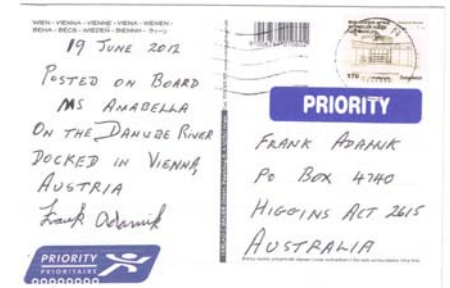 WIEN - VIENNA - VIENNE - VIENA - WENEN -
BÉCS - WIEDEŃ -
19 JUNE 2012
POSTED ON BOARD
MS AMABELLA
ON THE DANUBE RIVER
DOCKED IN VIENNA,
AUSTRIA
Frank Adamik
PRIORITY
PRIORITAIRE
170
PRIORITY
FRANK ADAMIK
PO BOX 4740
HIGGINS ACT 2615
AUSTRALIA